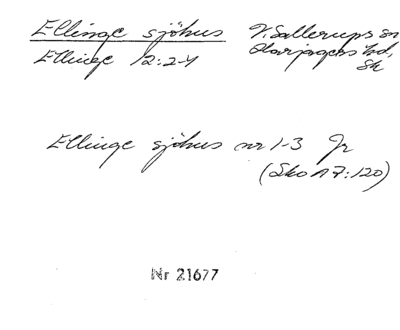 Ellinge sjöhus V. Sallerups sn
Ellinge 12:2-4 Harjagers hd,
Sk
Ellinge sjöhus nr 1-3 Jr
(Sko A 7:120)
Nr 21677